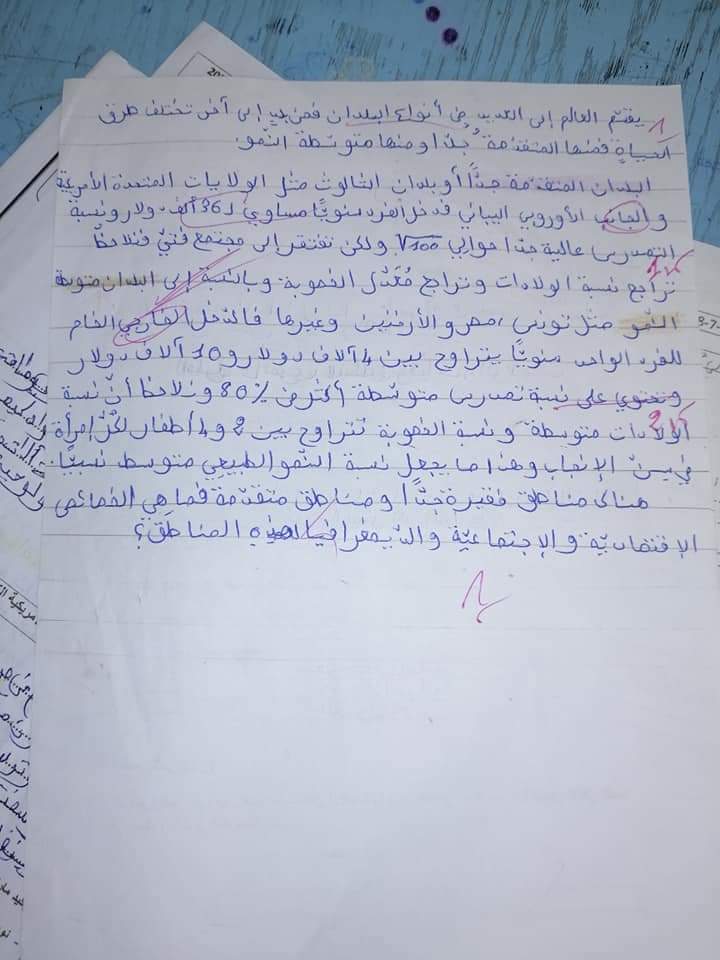 يقسّم العالم إلى العديد من أنواع البلدان فمن بلد إلى آخر تختلف طرق
الحياة فمنها المتقدّمة جدّا ومنها متوسّطة النّمو.
البلدان المتقدّمة جدًّا أو بلدان الثالوث مثل الولايات المتحدة الأمريكية
والجانب الأوروبي الياباني فدخل الفرد سنويًّا مساوي لـ 36 ألف دولار ونسبة
التمدرس عالية جدا حوالي 100% ولكن تفتقر إلى مجتمع فتيّ فنلاحظ
تراجع نسبة الولادات وتراجع مُعَدّل الخصوبة وبالنسبة إلى البلدان متوسطة
النّمو مثل تونس، مصر والأرجنتين وغيرها فالدّخل الخارجي الخام
للفرد الواحد سنويًّا يتراوح بين 4 آلاف دولار و10 آلاف دولار
وتحتوي على نسبة تمدرس متوسّطة أكثر من 80% ونلاحظ أنّ نسبة
الولادات متوسطة ونسبة الخصوبة تتراوح بين 2 و4 أطفال لكلّ إمرأة
في سنّ الإنجاب وهذا ما يجعل نسبة النّمو الطبيعي متوسط نسبيًّا.
هناك مناطق فقيرة جدًّا ومناطق متقدّمة فما هي الخصائص
الإقتصاديّة والإجتماعيّة والدّيمغرافيّة لهذه المناطق؟